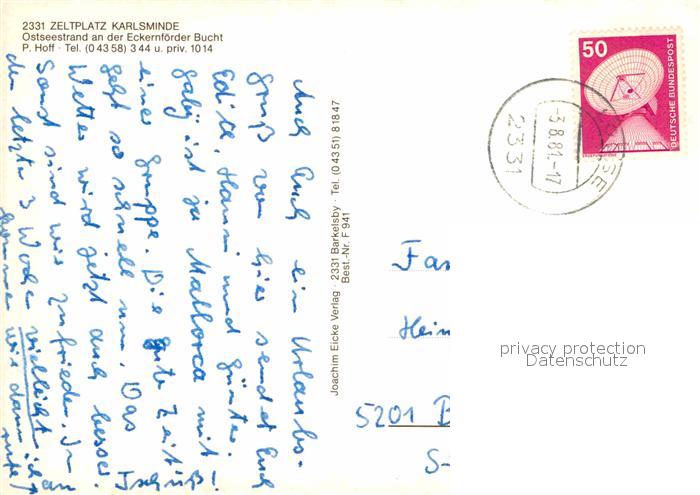 2331 ZELTPLATZ KARLSMINDE
Ostseestrand an der Eckernförder Bucht
P. Hoff · Tel. (0 43 58) 3 44 u. priv. 10 14
Auch Euch ein Urlaubs-
gruß von hier sendet Euch
Edith, Hanni und Günter.
Gaby ist ja Mallorca mit
einer Gruppe. Die gute Zeit
geht so schnell um. Das
Wetter wird jetzt auch besser.
Sonst sind wir zufrieden. In
den letzten 3 Wochen vielleicht
kommen wir dann
Tschüß!
Joachim Eicke Verlag · 2331 Barkelsby · Tel. (0 43 51) 8 18 47
Best.-Nr. F 941
50
DEUTSCHE BUNDESPOST
-3.8.81-17
2331
Fam
Hein
5201 B
S-
privacy protection
Datenschutz